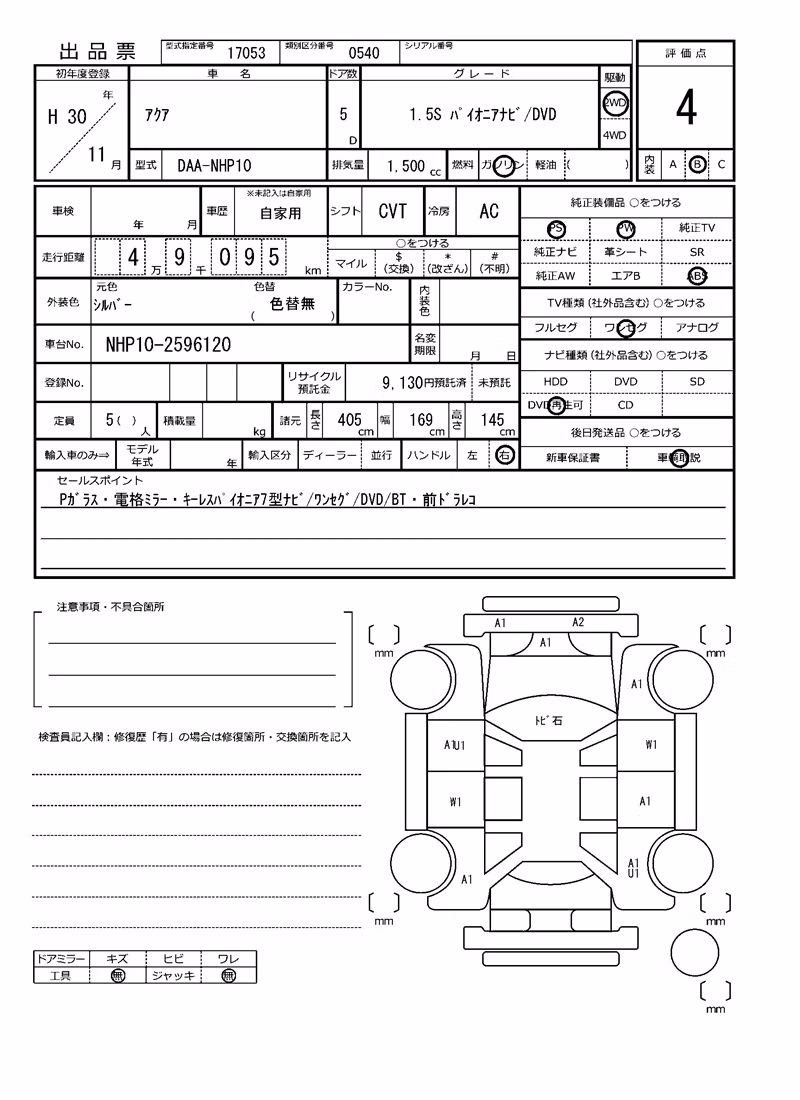 出品票 型式指定番号 17053 類別区分番号 0540 シリアル番号
評価点
4
内装 A B C
初年度登録 車名 ドア数 グレード 駆動
H 30 年 11 月 アクア 5 D 1.5S ﾊﾟｲｵﾆｱﾅﾋﾞ/DVD 2WD
4WD
型式 DAA-NHP10 排気量 1,500 cc 燃料 ガソリン 軽油 ( )
車検 年 月 車歴 ※未記入は自家用 自家用 シフト CVT 冷房 AC
走行距離 4 万 9 千 0 9 5 km ○をつける
マイル $(交換) *(改ざん) #(不明)
外装色 元色 ｼﾙﾊﾞｰ 色替 ( 色替無 ) カラーNo. 内装色
車台No. NHP10-2596120 名変期限 月 日
登録No. リサイクル預託金 9,130円預託済 未預託
定員 5( ) 人 積載量 kg 諸元 長さ 405 cm 幅 169 cm 高さ 145 cm
輸入車のみ⇒ モデル年式 年 輸入区分 ディーラー 並行 ハンドル 左 右
純正装備品 ○をつける
PS PW 純正TV
純正ナビ 革シート SR
純正AW エアB ABS
TV種類 (社外品含む) ○をつける
フルセグ ワンセグ アナログ
ナビ種類 (社外品含む) ○をつける
HDD DVD SD
DVD再生可 CD
後日発送品 ○をつける
新車保証書 車輌取説
セールスポイント
Pｶﾞﾗｽ・電格ﾐﾗｰ・ｷｰﾚｽﾊﾟｲｵﾆｱ7型ﾅﾋﾞ/ﾜﾝｾｸﾞ/DVD/BT・前ﾄﾞﾗﾚｺ
注意事項・不具合箇所
検査員記入欄：修復歴「有」の場合は修復箇所・交換箇所を記入
ドアミラー キズ ヒビ ワレ
工具 無 ジャッキ 無
A1 A2
mm A1 mm
A1
ﾄﾋﾞ石
A1U1 W1
W1 A1
A1 A1
U1
mm mm
mm